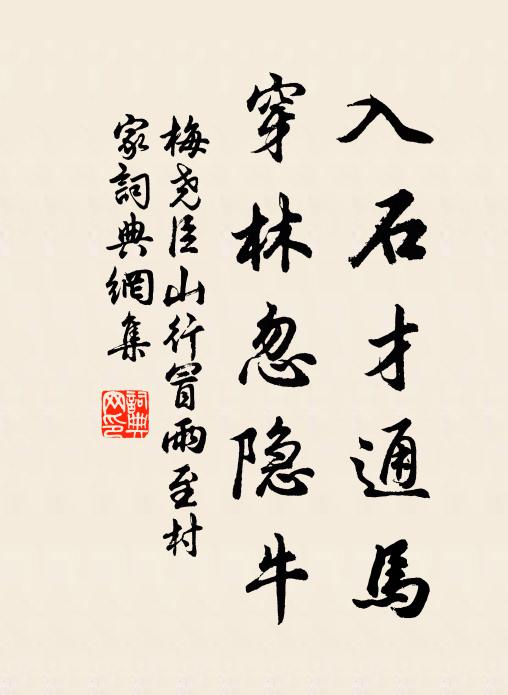 入石才通馬
穿林忽隐牛
梅尧臣山行冒雨至村
家詞典網集
詞典
网印